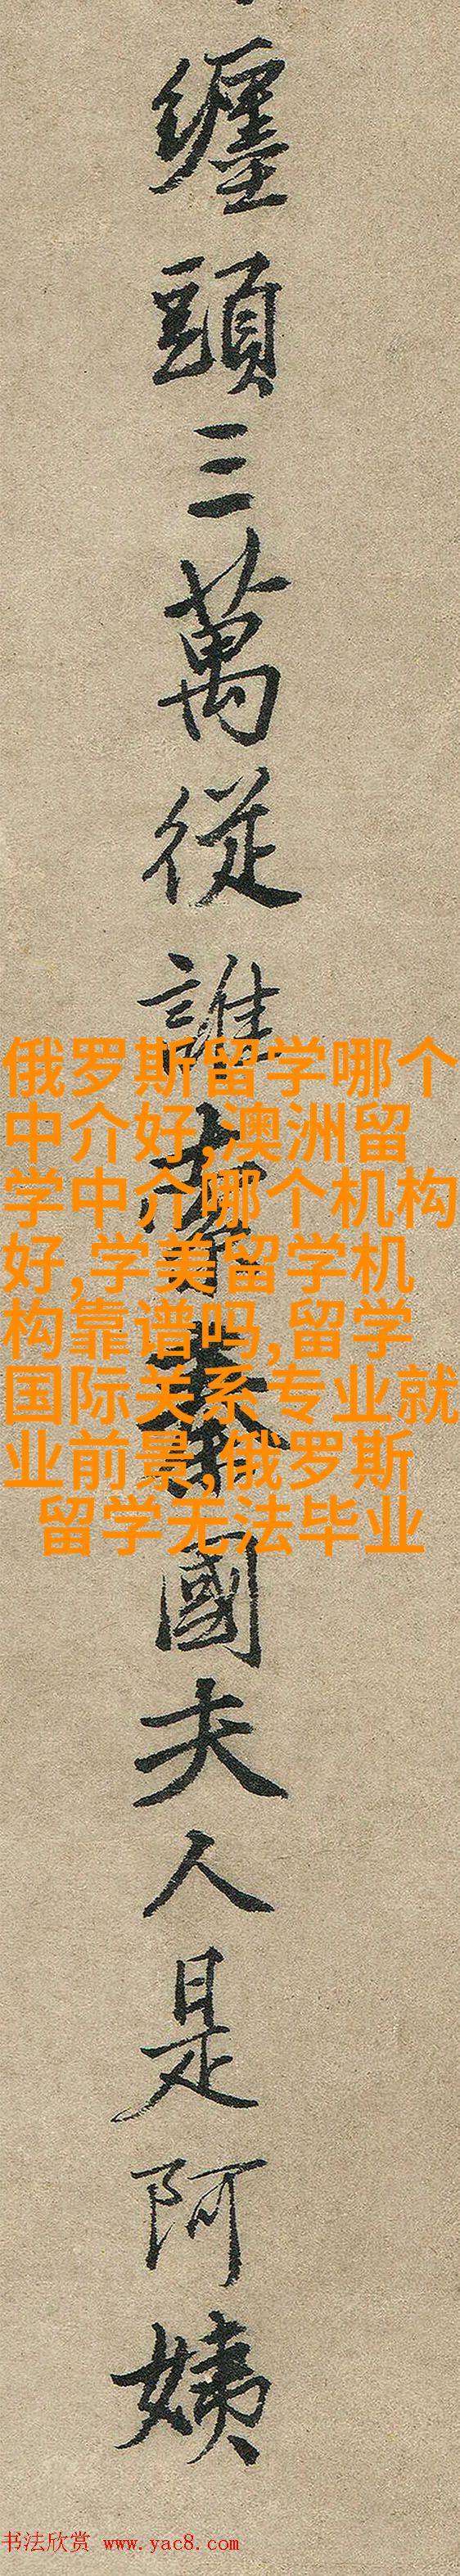 纏頭三萬從誰索秦國夫人是阿姨
俄罗斯留学哪个
中介好,澳洲留
学中介哪个机构
好,学美留学机
构靠谱吗,留学
国际关系专业就
业前景,俄罗斯
留学无法毕业
书法欣赏 www.yac8.com